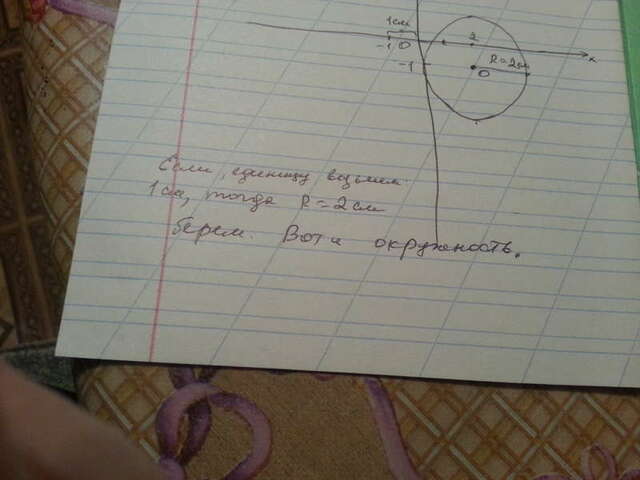 1см
-1 0 2 x
-1 R=2см
O
Если единицу возьмем
1см, тогда R=2см
берем. Вот и окружность.